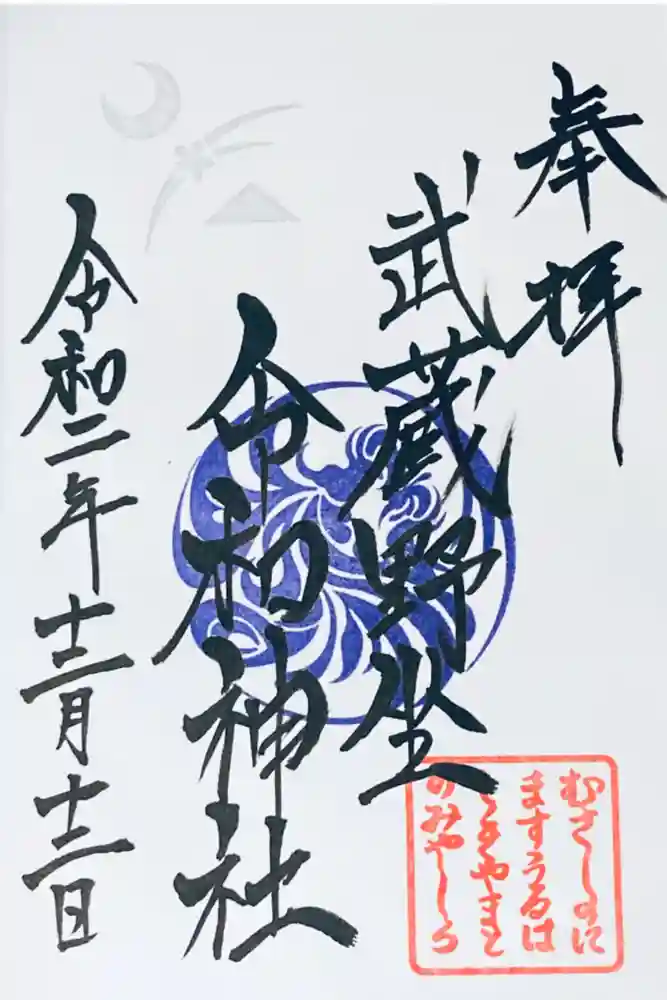 奉拝
武蔵野坐
令和神社
令和二年十二月十二日
むさしのに
ますうるは
しきやまと
のみやしろ